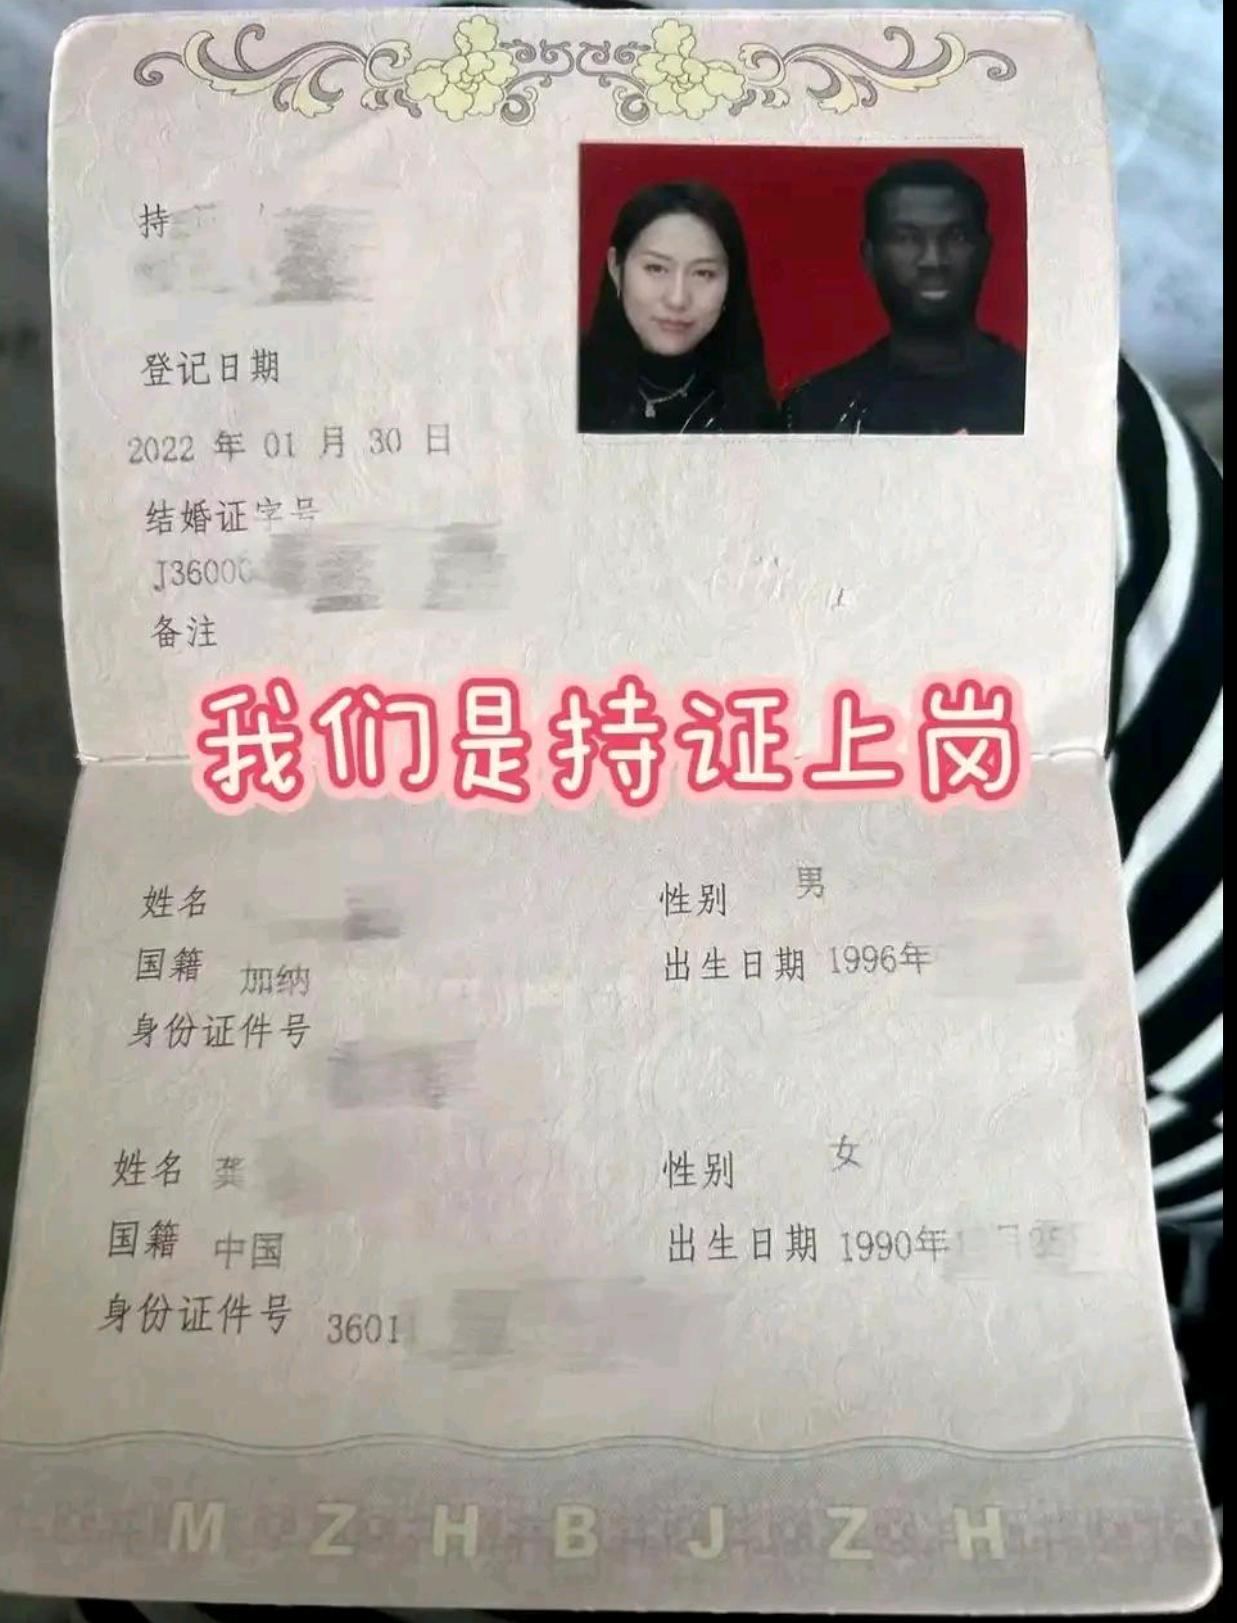 持
登记日期
2022 年 01 月 30 日
结婚证字号
J3600
备注
我们是持证上岗
姓名
性别 男
国籍 加纳
出生日期 1996年
身份证件号
姓名 龚
性别 女
国籍 中国
出生日期 1990年
身份证件号 3601
M Z H B J Z H